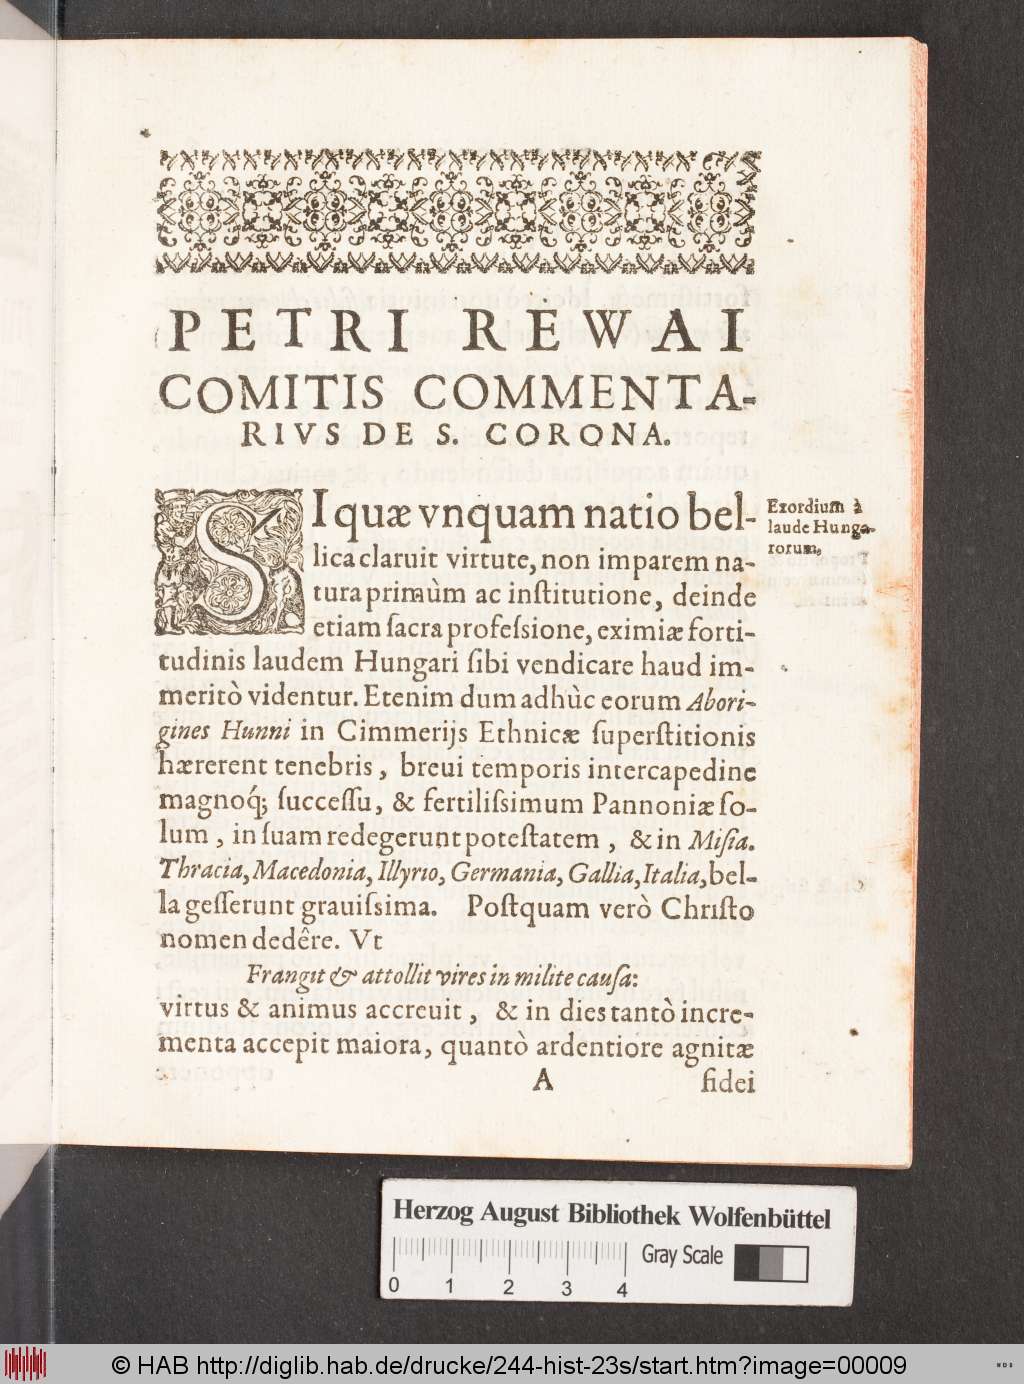 PETRI REWAI
COMITIS COMMENTA-
RIVS DE S. CORONA.
SI quæ vnquam natio bel-
lica claruit virtute, non imparem na-
tura primùm ac inſtitutione, deinde
etiam ſacra profeſsione, eximiæ forti-
tudinis laudem Hungari ſibi vendicare haud im-
meritò videntur. Etenim dum adhùc eorum Abori-
gines Hunni in Cimmerijs Ethnicæ ſuperſtitionis
hærerent tenebris, breui temporis intercapedine
magnoq́; ſucceſſu, & fertiliſsimum Pannoniæ ſo-
lum, in ſuam redegerunt poteſtatem, & in Miſia.
Thracia, Macedonia, Illyrio, Germania, Gallia, Italia, bel-
la geſſerunt grauiſsima. Poſtquam verò Chriſto
nomen dedêre. Vt
Frangit & attollit vires in milite cauſa:
virtus & animus accreuit, & in dies tantò incre-
menta accepit maiora, quantò ardentiore agnitæ
A fidei
Exordium à
laude Hunga-
rorum,
Herzog August Bibliothek Wolfenbüttel
Gray Scale
0 1 2 3 4
© HAB http://diglib.hab.de/drucke/244-hist-23s/start.htm?image=00009